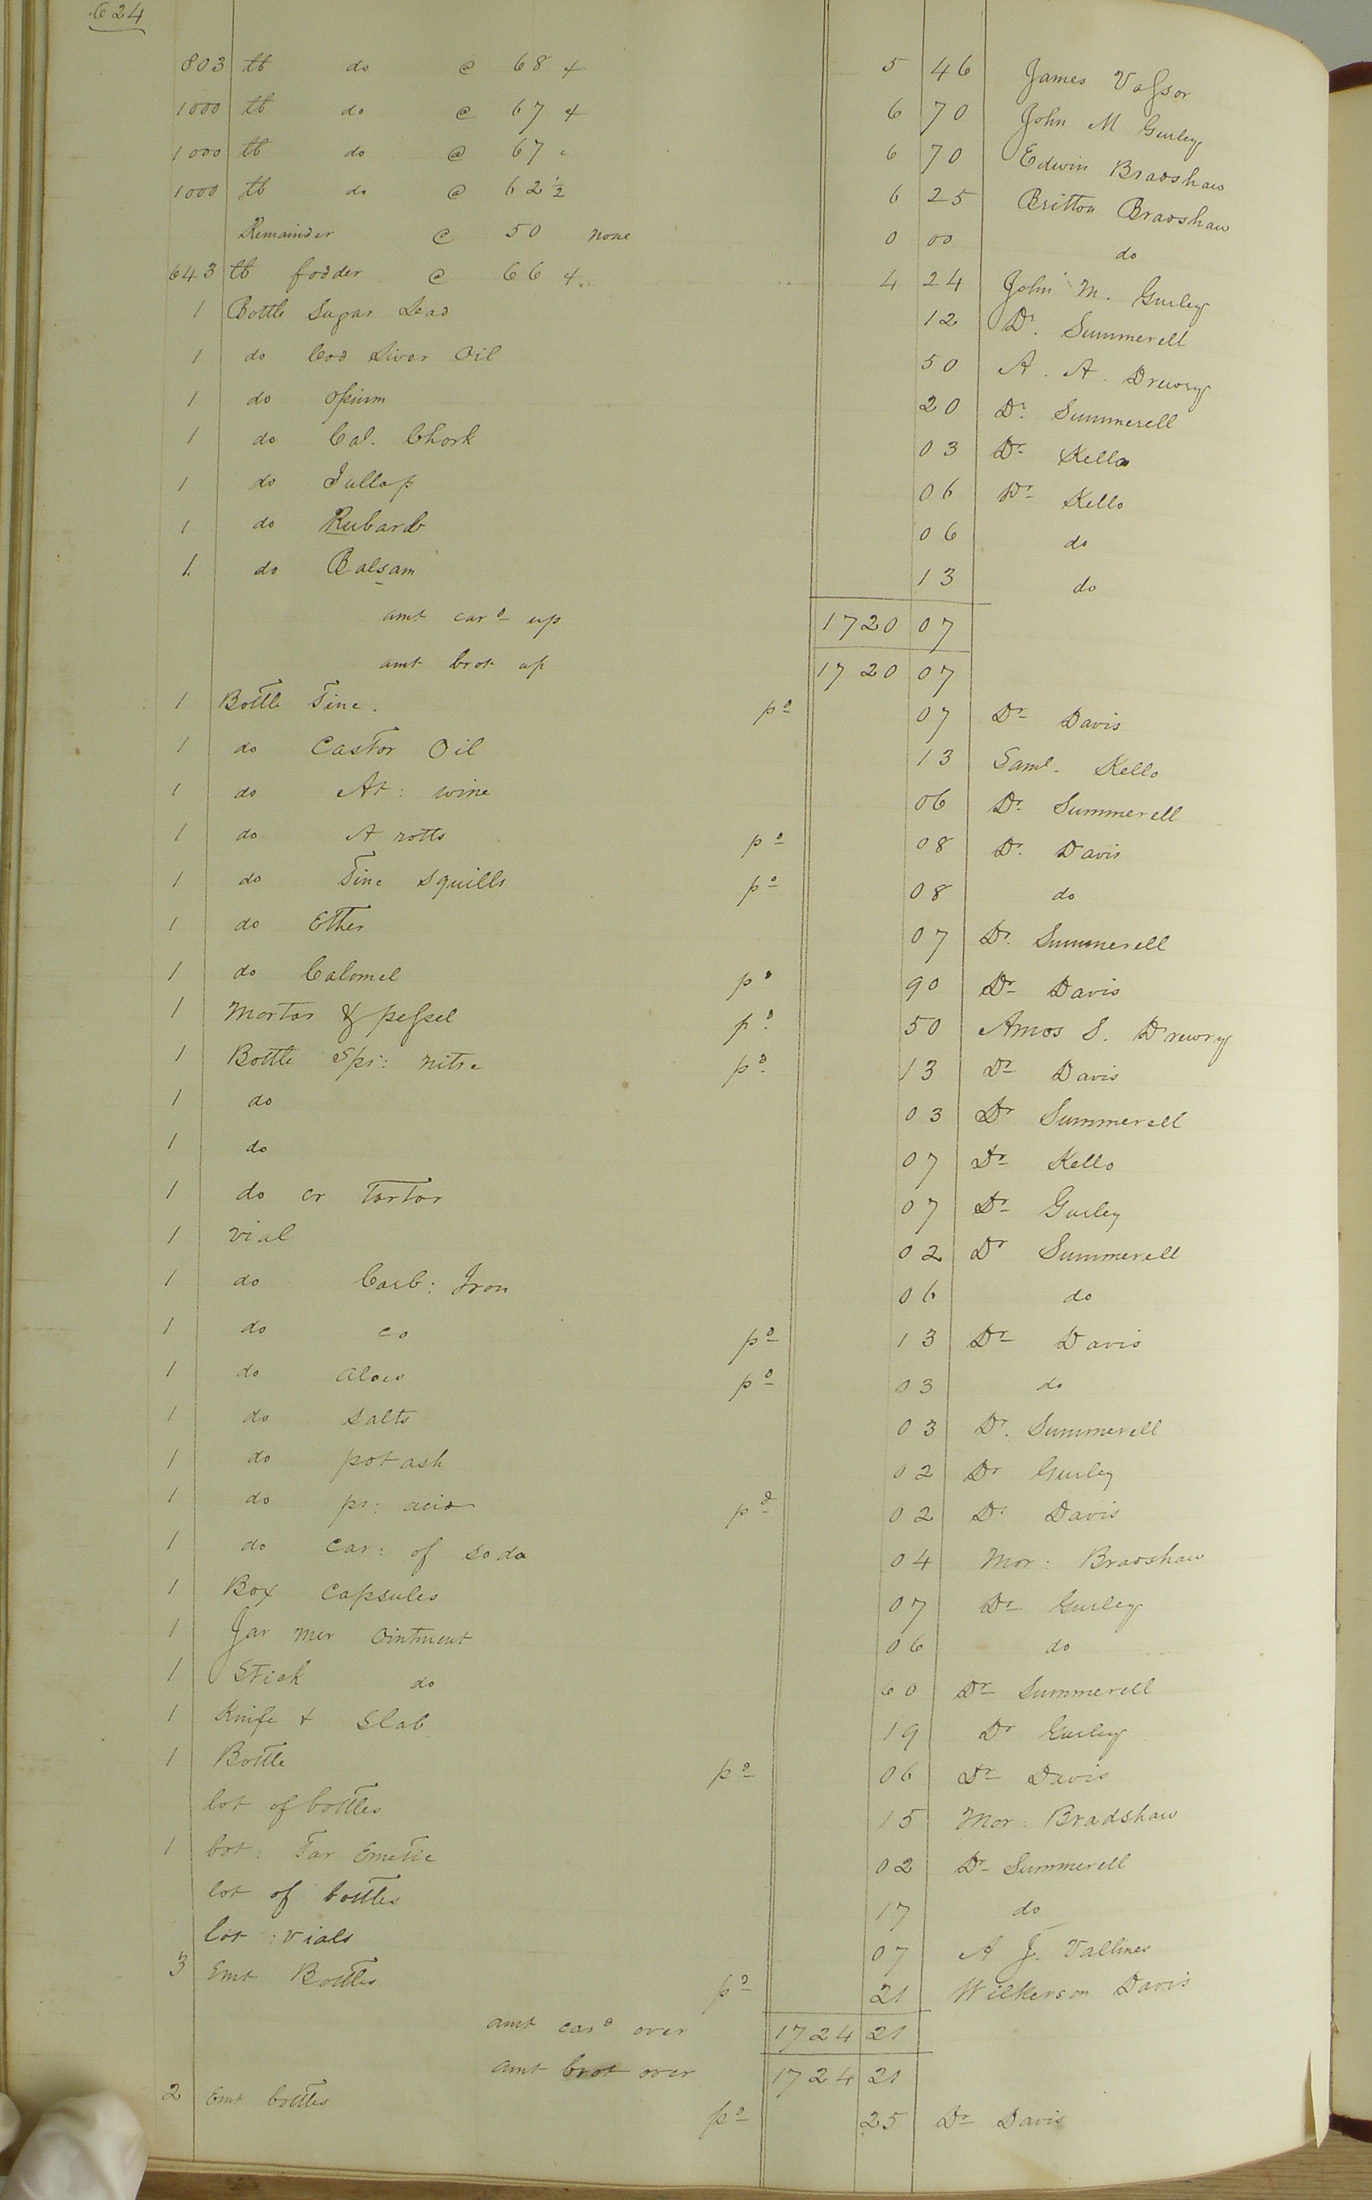 624
803 lb do @ 68 ¢ 5 46 James Vassor
1000 lb do @ 67 ¢ 6 70 John M Gurley
1000 lb do @ 67 " 6 70 Edwin Bradshaw
1000 lb do @ 62 1/2 6 25 Britton Bradshaw
Remainder @ 50 none 0 00 do
643 lb fodder @ 66 ¢. 4 24 John M. Gurley
1 Bottle Sugar Lead 12 Dr. Summerell
1 do Cod Liver Oil 50 A. A. Drewry
1 do Opium 20 Dr. Summerell
1 do Cal. Chork 03 Dr Kello
1 do Jullap 06 Dr Kello
1 do Rubarb 06 do
1. do Balsam 13 do
amt card up 1720 07
amt brot up 1720 07
1 Bottle Tinc. pd 07 Dr Davis
1 do Castor Oil 13 Saml. Kello
1 do At: wine 06 Dr. Summerell
1 do A rotts pd 08 Dr. Davis
1 do Tinc Squills pd 08 do
1 do Ether 07 Dr. Summerell
1 do Calomel pd 90 Dr Davis
1 Mortar & pessel pd. 50 Amos S. Drewry
1 Bottle Spr: nitre pd. 13 Dr Davis
1 do 03 Dr Summerell
1 do 07 Dr Kello
1 do cr Tartar 07 Dr Gurley
1 vial 02 Dr Summerell
1 do Carb: Iron 06 do
1 do co pd 13 Dr Davis
1 do aloes pd 03 do
1 do salts 03 Dr. Summerell
1 do potash 02 Dr Gurley
1 do pr: acid pd 02 Dr Davis
1 do Car: of Soda 04 Mor: Bradshaw
1 Box Capsules 07 Dr Gurley
1 Jar mer Ointment 06 do
1 Stick do 60 Dr Summerell
1 Knife & Slab 19 Dr Gurley
1 Bottle pd 06 Dr Davis
lot of bottles 15 Mor. Bradshaw
1 bot: Tar Emetic 02 Dr Summerell
lot of bottles 17 do
lot : vials 07 A J. Vallines
3 Emt Bottles pd 21 Wilkerson Davis
amt card over 1724 21
amt brot over 1724 21
2 Emt bottles pd 25 Dr Davis